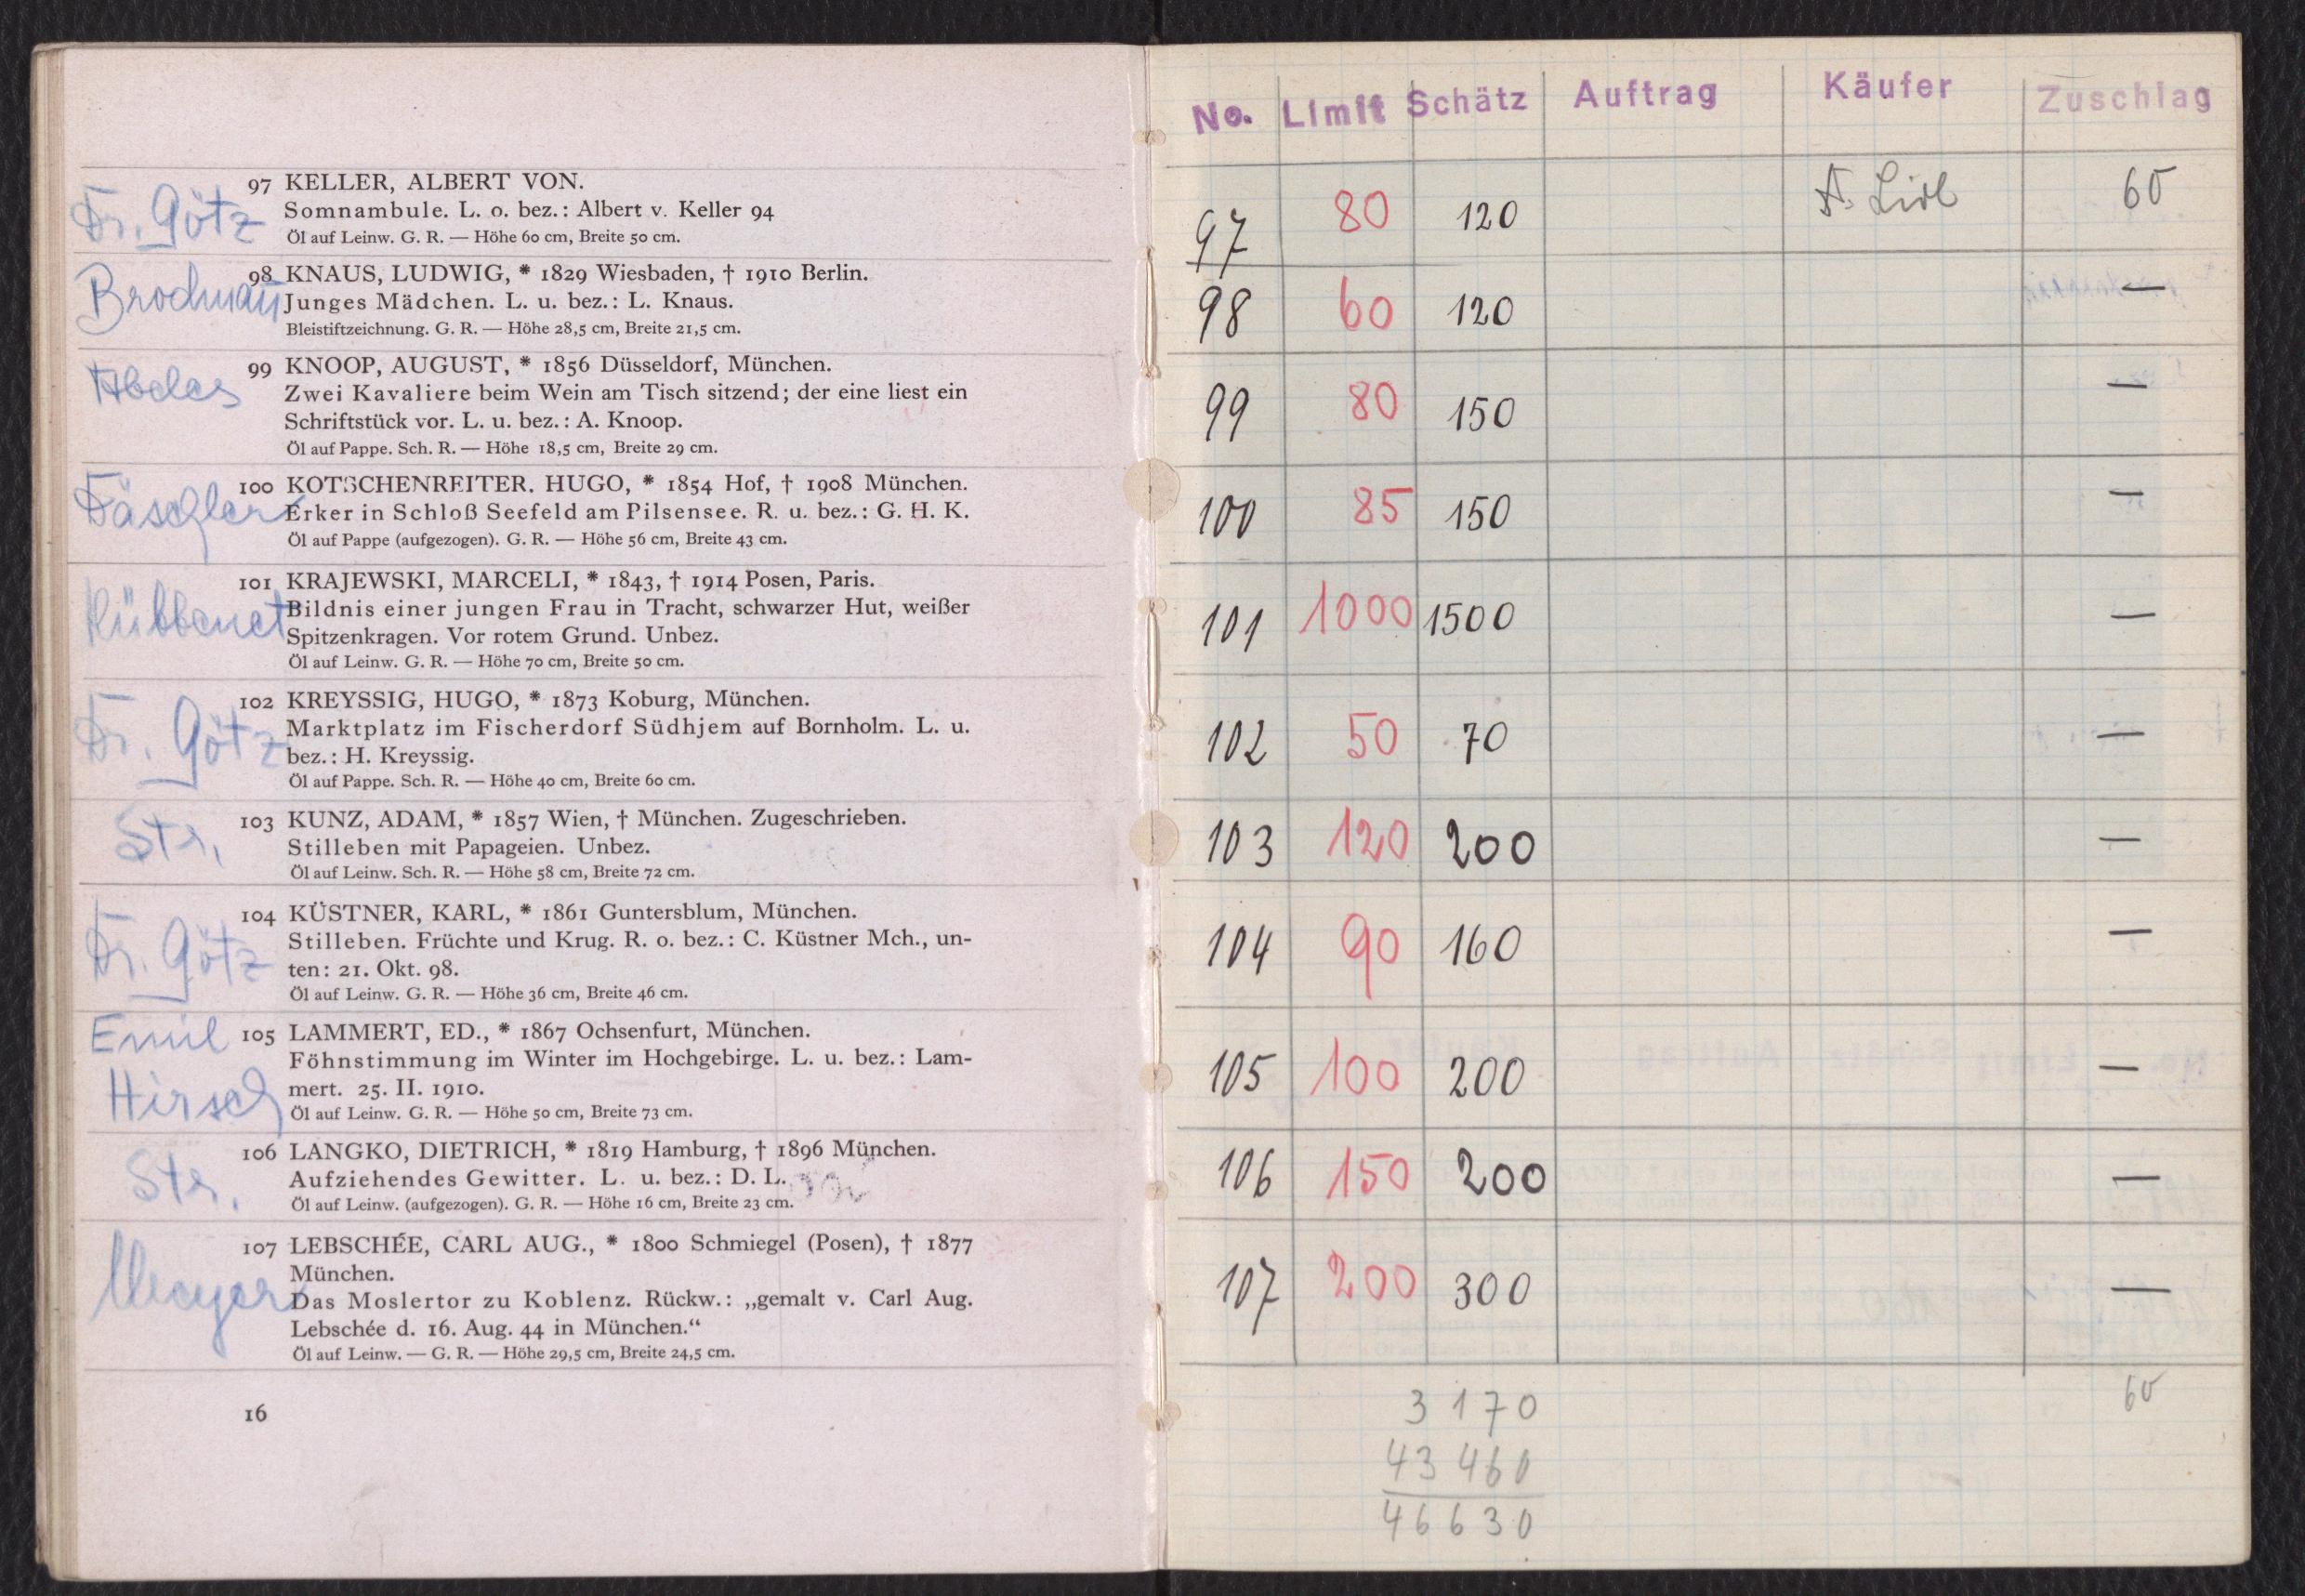 Dr. Götz
97 KELLER, ALBERT VON.
Somnambule. L. o. bez.: Albert v. Keller 94
Öl auf Leinw. G. R. — Höhe 60 cm, Breite 50 cm.
98 KNAUS, LUDWIG, * 1829 Wiesbaden, † 1910 Berlin.
Junges Mädchen. L. u. bez.: L. Knaus.
Bleistiftzeichnung. G. R. — Höhe 28,5 cm, Breite 21,5 cm.
Abeles
99 KNOOP, AUGUST, * 1856 Düsseldorf, München.
Zwei Kavaliere beim Wein am Tisch sitzend; der eine liest ein
Schriftstück vor. L. u. bez.: A. Knoop.
Öl auf Pappe. Sch. R. — Höhe 18,5 cm, Breite 29 cm.
100 KOTSCHENREITER. HUGO, * 1854 Hof, † 1908 München.
Erker in Schloß Seefeld am Pilsensee. R. u. bez.: G. H. K.
Öl auf Pappe (aufgezogen). G. R. — Höhe 56 cm, Breite 43 cm.
101 KRAJEWSKI, MARCELI, * 1843, † 1914 Posen, Paris.
Bildnis einer jungen Frau in Tracht, schwarzer Hut, weißer
Spitzenkragen. Vor rotem Grund. Unbez.
Öl auf Leinw. G. R. — Höhe 70 cm, Breite 50 cm.
Dr. Götz
102 KREYSSIG, HUGO, * 1873 Koburg, München.
Marktplatz im Fischerdorf Südhjem auf Bornholm. L. u.
bez.: H. Kreyssig.
Öl auf Pappe. Sch. R. — Höhe 40 cm, Breite 60 cm.
Str.
103 KUNZ, ADAM, * 1857 Wien, † München. Zugeschrieben.
Stilleben mit Papageien. Unbez.
Öl auf Leinw. Sch. R. — Höhe 58 cm, Breite 72 cm.
Dr. Götz
104 KÜSTNER, KARL, * 1861 Guntersblum, München.
Stilleben. Früchte und Krug. R. o. bez.: C. Küstner Mch., un-
ten: 21. Okt. 98.
Öl auf Leinw. G. R. — Höhe 36 cm, Breite 46 cm.
Emil
Hirsch
105 LAMMERT, ED., * 1867 Ochsenfurt, München.
Föhnstimmung im Winter im Hochgebirge. L. u. bez.: Lam-
mert. 25. II. 1910.
Öl auf Leinw. G. R. — Höhe 50 cm, Breite 73 cm.
Str.
106 LANGKO, DIETRICH, * 1819 Hamburg, † 1896 München.
Aufziehendes Gewitter. L. u. bez.: D. L.
Öl auf Leinw. (aufgezogen). G. R. — Höhe 16 cm, Breite 23 cm.
Meyer
107 LEBSCHÉE, CARL AUG., * 1800 Schmiegel (Posen), † 1877
München.
Das Moslertor zu Koblenz. Rückw.: „gemalt v. Carl Aug.
Lebschée d. 16. Aug. 44 in München.“
Öl auf Leinw. — G. R. — Höhe 29,5 cm, Breite 24,5 cm.
16
No. Limit Schätz Auftrag Käufer Zuschlag
97 80 120 60
98 60 120 —
99 80 150 —
100 85 150 —
101 1000 1500 —
102 50 70 —
103 120 200 —
104 90 160 —
105 100 200 —
106 150 200 —
107 200 300 —
3170 60
43460
46630